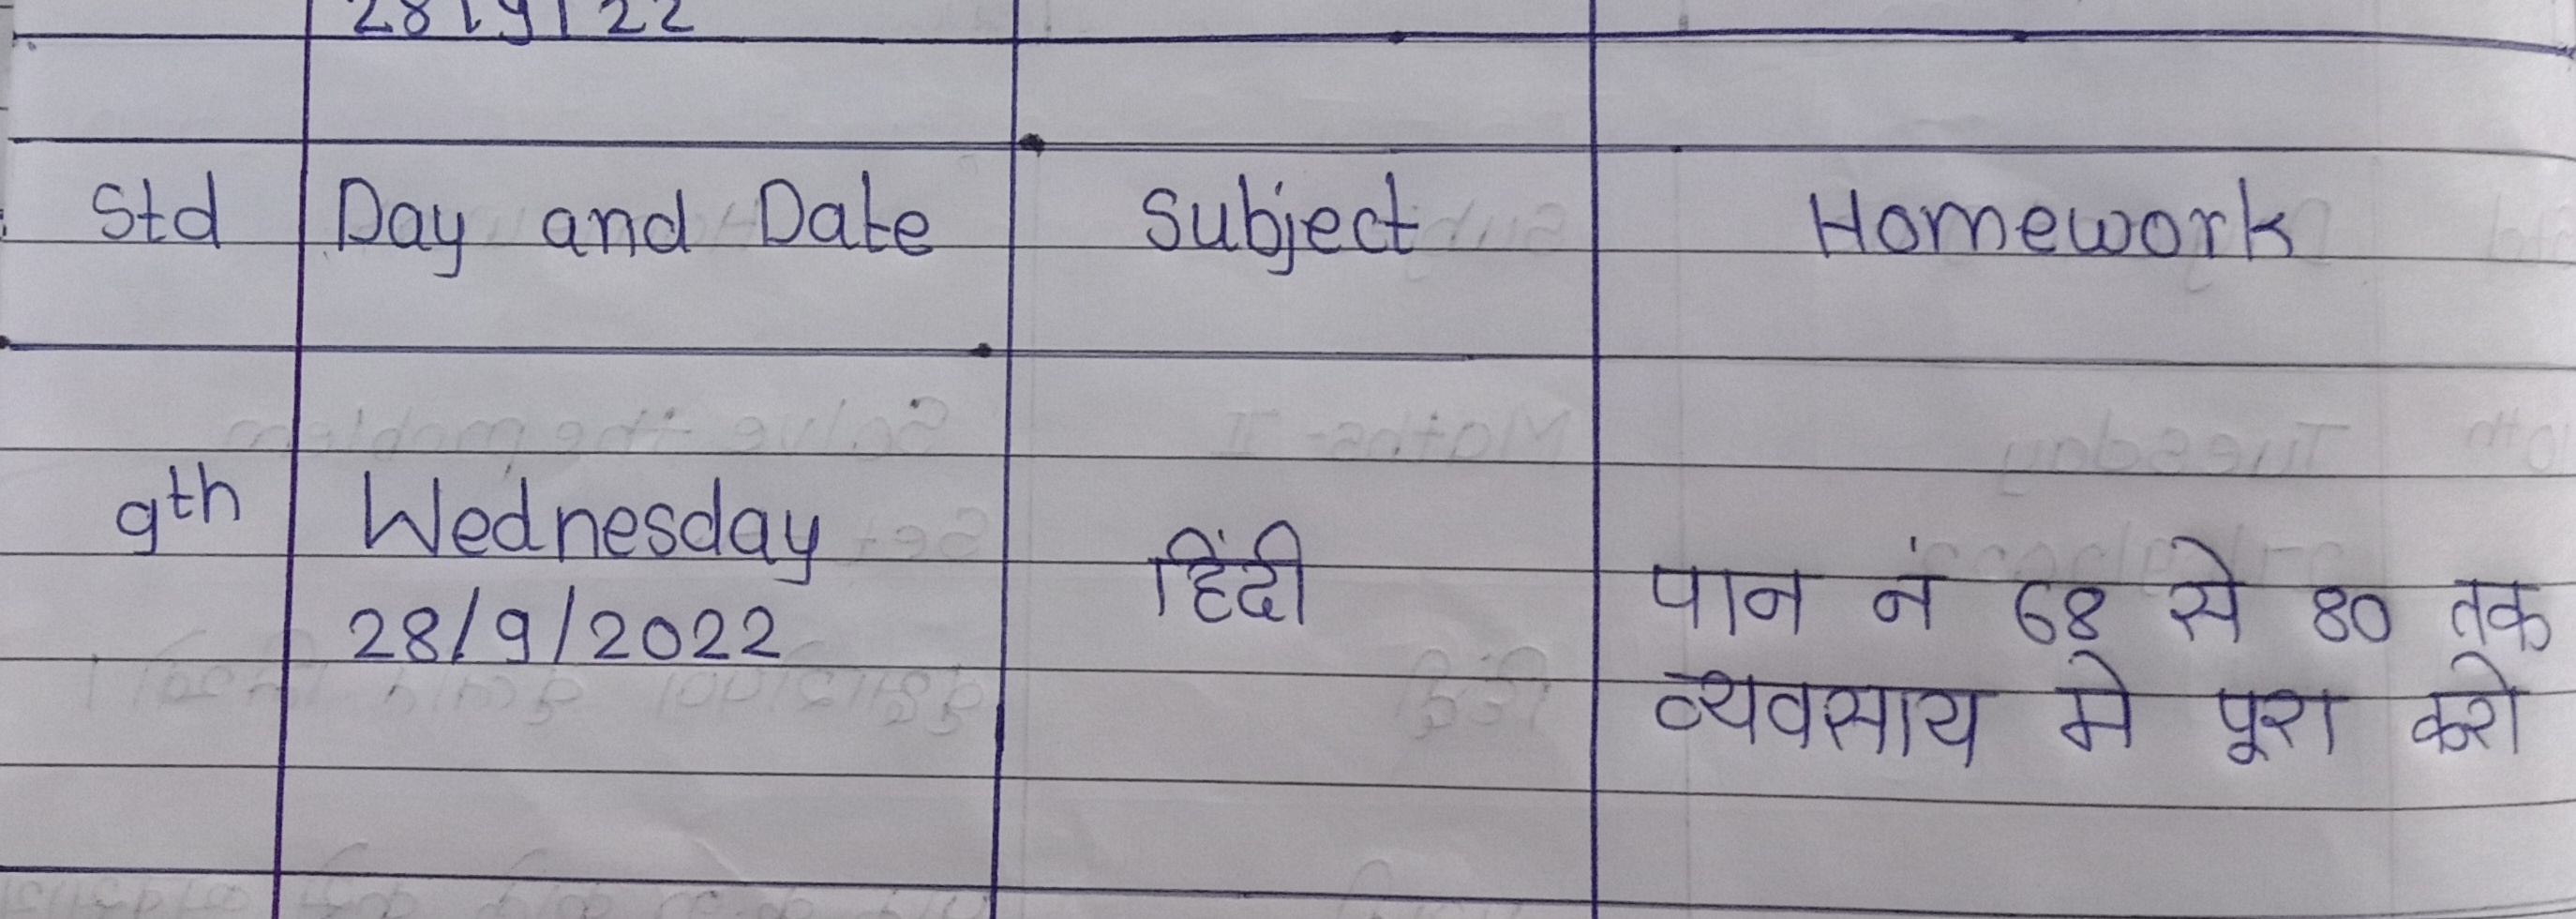 28/9/22
Std Day and Date Subject Homework
9th Wednesday
28/9/2022 हिंदी पान नं 68 से 80 तक
व्यवसाय मे पूरा करो